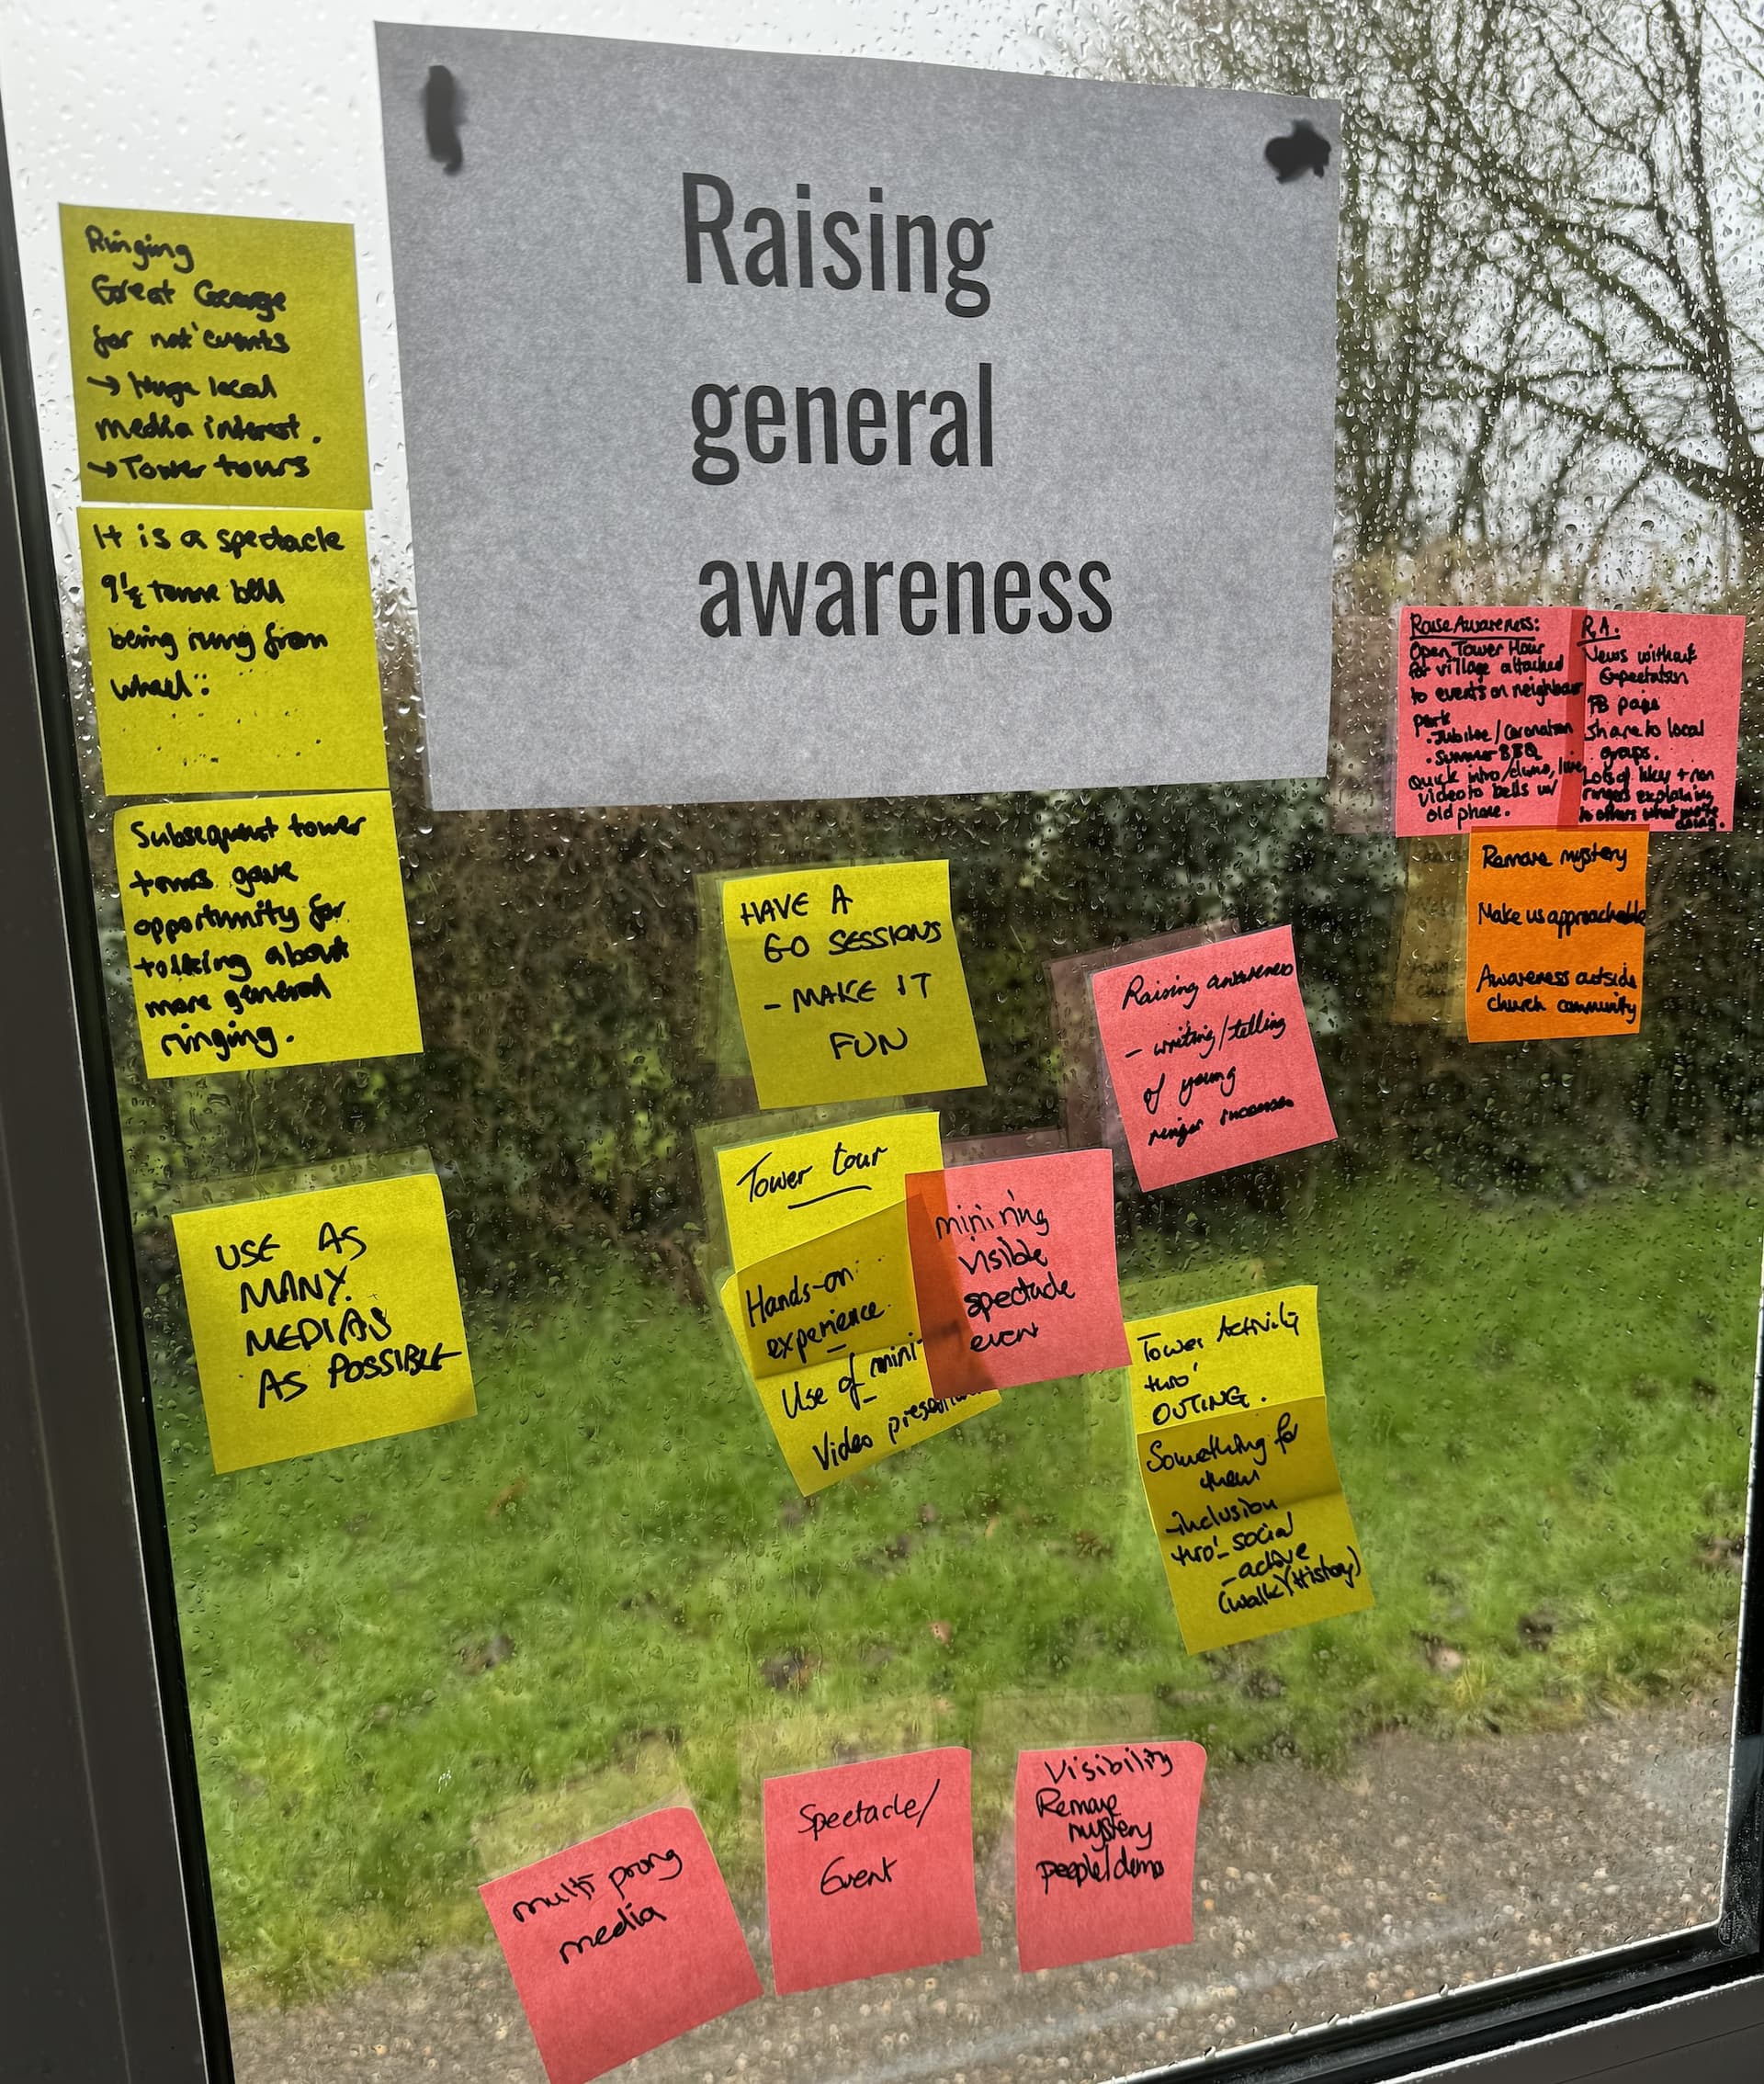 Raising
general
awareness
Ringing
Great George
for nat' events
→ Huge local
media interest.
→ Tower tours
It is a spectacle
9½ tonne bell
being rung from
wheel
Subsequent tower
tours gave
opportunity for
talking about
more general
ringing.
USE AS
MANY
MEDIAS
AS POSSIBLE
HAVE A
GO SESSIONS
- MAKE IT
FUN
Tower tour
Hands-on
experience
Use of mini
Video
mini ring
visible
spectacle
event
Raising awareness
- writing/telling
of young
ringer successes
Raise Awareness:
Open Tower Hour
for village attached
to events on neighbour
park
• Jubilee/Coronation
• Summer BBQ
Quick intro/demo, live
video to bells w/
old phone.
R.A.
News without
Expectation
FB page
Share to local
groups.
Lots of likes + non
ringers explaining
to others what we're
doing.
Remove mystery
Make us approachable
Awareness outside
church community
Tower Activity
thro'
OUTING.
Something for
them
-inclusion
thro'- social
- active
(walk/History)
Multi prong
media
Spectacle/
Event
Visibility
Remove
mystery
people/demo